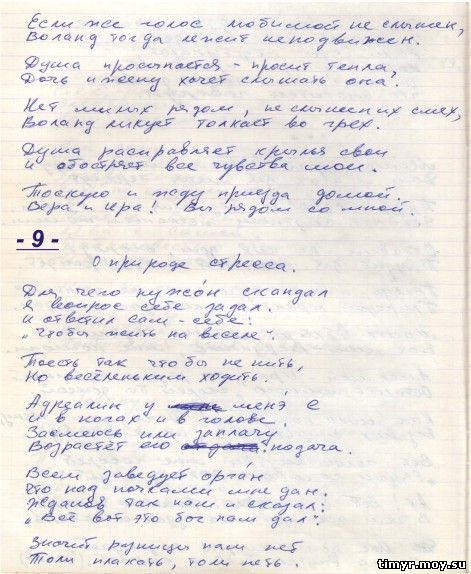 Если же голос любимой не слышен,
Воланд тогда лежит неподвижен.
Душа просыпается - просит тепла
Дочь и жену хочет слышать она?
Нет милых рядом, не слышен их смех,
Воланд ликует толкает во грех.
Душа расправляет крылья свои
и обостряет все чувства мои.
Тоскую и жду приезда домой.
Вера и Ира! Вы рядом со мной.
- 9 -
О природе стресса.
Для чего нужо́н скандал
Я вопрос себе задал.
И ответил сам - себе:
„Чтобы жить на веселе".
Тоесть так что бы не пить,
Но весёленьким ходить.
Адреалин у менэ́ е
и в ногах и в голове.
Засмеюсь или заплачу
Возрастёт его подача.
Всем заведует орга́н
Что над почками мне дан.
Жданов так нам и сказал:
„Всё вот это бог нам дал".
Значит разницы нам нет
Толи плакать, толи петь.
timyr.moy.su